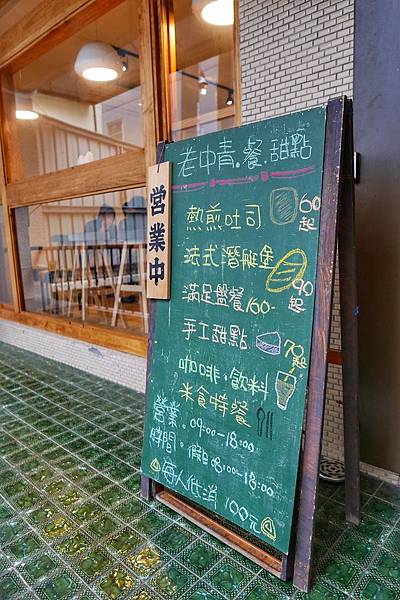 老中青。餐.甜點
營業中
熱煎吐司 60起
法式潛艇堡 90起
滿足盤餐160-
手工甜點 70起
咖啡.飲料
米食特餐
營業。09:00-18:00
時間。假日08:00-18:00
每人低消 100元